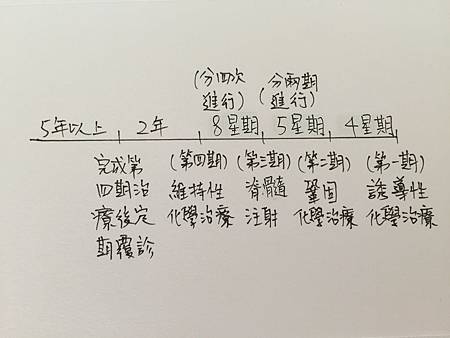 (分四次 (分兩期
進行) 進行)
5年以上, 2年, 8星期, 5星期, 4星期
完成第 (第四期) (第三期) (第二期) (第一期)
四期治 維持性 脊髓 鞏固 誘導性
療後定 化學治療 注射 化學治療 化學治療
期覆診